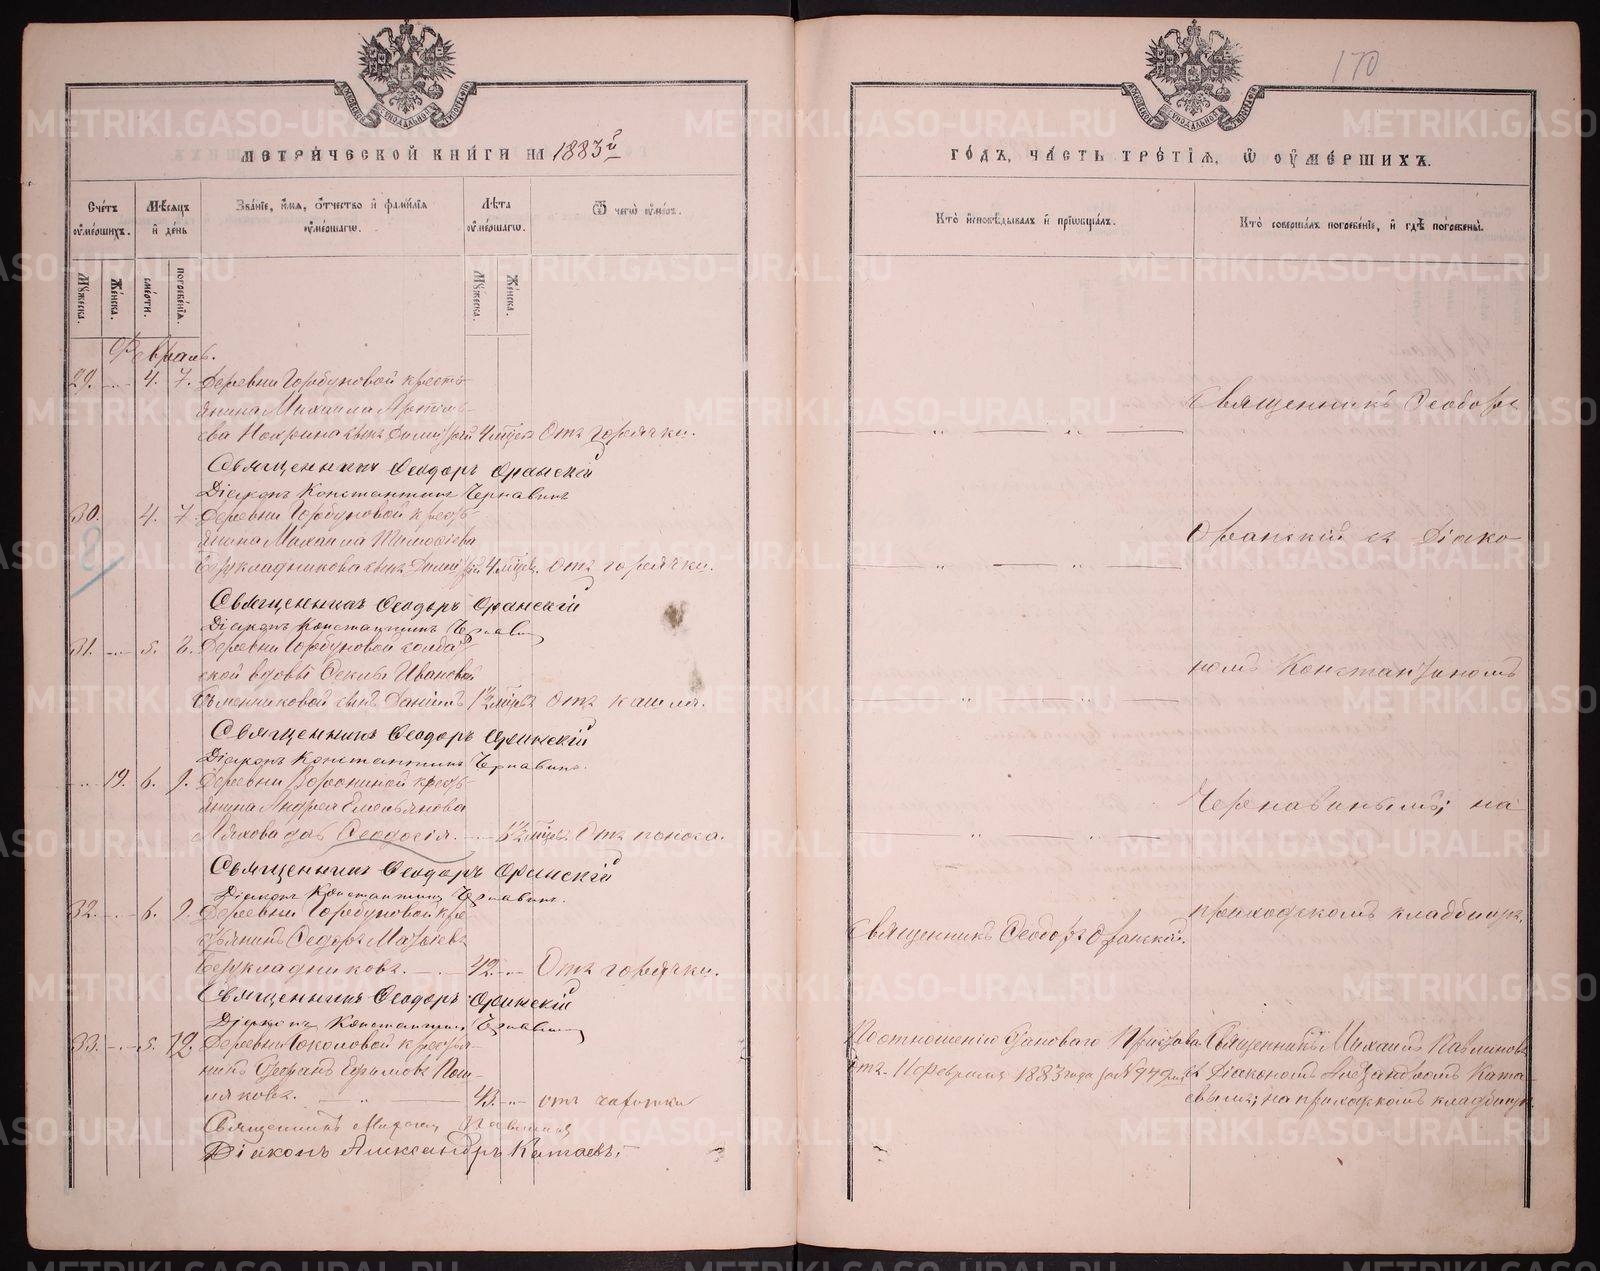 МЕТРИЧЕСКОЙ КНИГИ НА 1883й
Счетъ оумершихъ.
Мѣсяцъ и день
Званіе, имя, отчество и фамилія оумершагѡ.
Лѣта оумершагѡ.
Ѿ чегѡ оумеръ.
Мꙋжеска.
Женска.
смерти.
погребенія.
Мꙋжеска.
Женска.
Февраль.
29. 4. 7. Деревни Горбуновой кресть-
янина Михаила
сынъ Димитрій 4 мѣс. Отъ горячки.
Священникъ Ѳеодоръ Оранскій
Діаконъ Константинъ Чернавинъ
30. 4. 7. Деревни Горбуновой кресть-
янина Михаила Тимоѳеева
Берукладникова сынъ Димитрій 4 мѣс. Отъ горячки.
Священникъ Ѳеодоръ Оранскій
Діаконъ Константинъ Чернавинъ
31. 5. 8. Деревни Горбуновой солдат-
ской вдовы Ѳеклы Ивановой
сынъ Даніилъ 1½ мѣс. Отъ кашля.
Священникъ Ѳеодоръ Оранскій
Діаконъ Константинъ Чернавинъ.
19. 6. 9. Деревни Ворониной кресть-
янина Андрея Емельянова
дочь Ѳеодосія. мѣс. Отъ поноса.
Священникъ Ѳеодоръ Оранскій
Діаконъ Константинъ Чернавинъ.
32. 6. 9. Деревни Горбуновой кре-
стьянинъ Ѳедоръ Матвѣевъ
Берукладниковъ. 42. Отъ горячки.
Священникъ Ѳеодоръ Оранскій
Діаконъ Константинъ Чернавинъ
33. 5. 12. Деревни Соколовой крестья-
нинъ Стефанъ Ефимовъ Пош-
ляковъ. 43. отъ чахотки
Священникъ Михаилъ
Діаконъ Александръ Катаевъ.
170
ГОДЪ, ЧАСТЬ ТРЕТІЯ, Ѡ ОУМЕРШИХЪ.
Кто исповѣдывалъ и пріобщалъ.
Кто совершалъ погребеніе, и гдѣ погребены.
Священникъ Ѳеодоръ
Оранскій съ Діако-
номъ Константиномъ
Чернавинымъ; на
приходскомъ кладбищѣ.
Священникъ Ѳеодоръ Оранскій.
По отношенію Становаго Пристава
отъ 11 февраля 1883 года за №
Священникъ Михаилъ
съ Діакономъ Александромъ Ката-
евымъ; на приходскомъ кладбищѣ